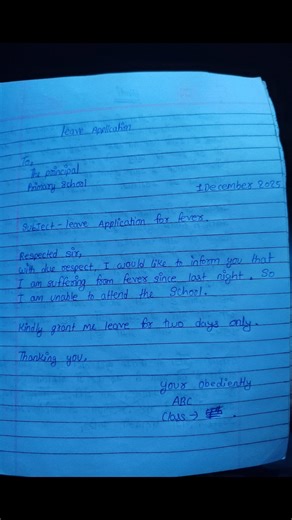 leave Application
To,
The principal
Primary School
1 December 2025
Subject - leave Application for fever.
Respected Sir,
with due respect, I would like to inform you that
I am suffering from fever since last night. So
I am unable to attend the School.
Kindly grant me leave for two days only.
Thanking you.
Your Obediently
ABC
Class →